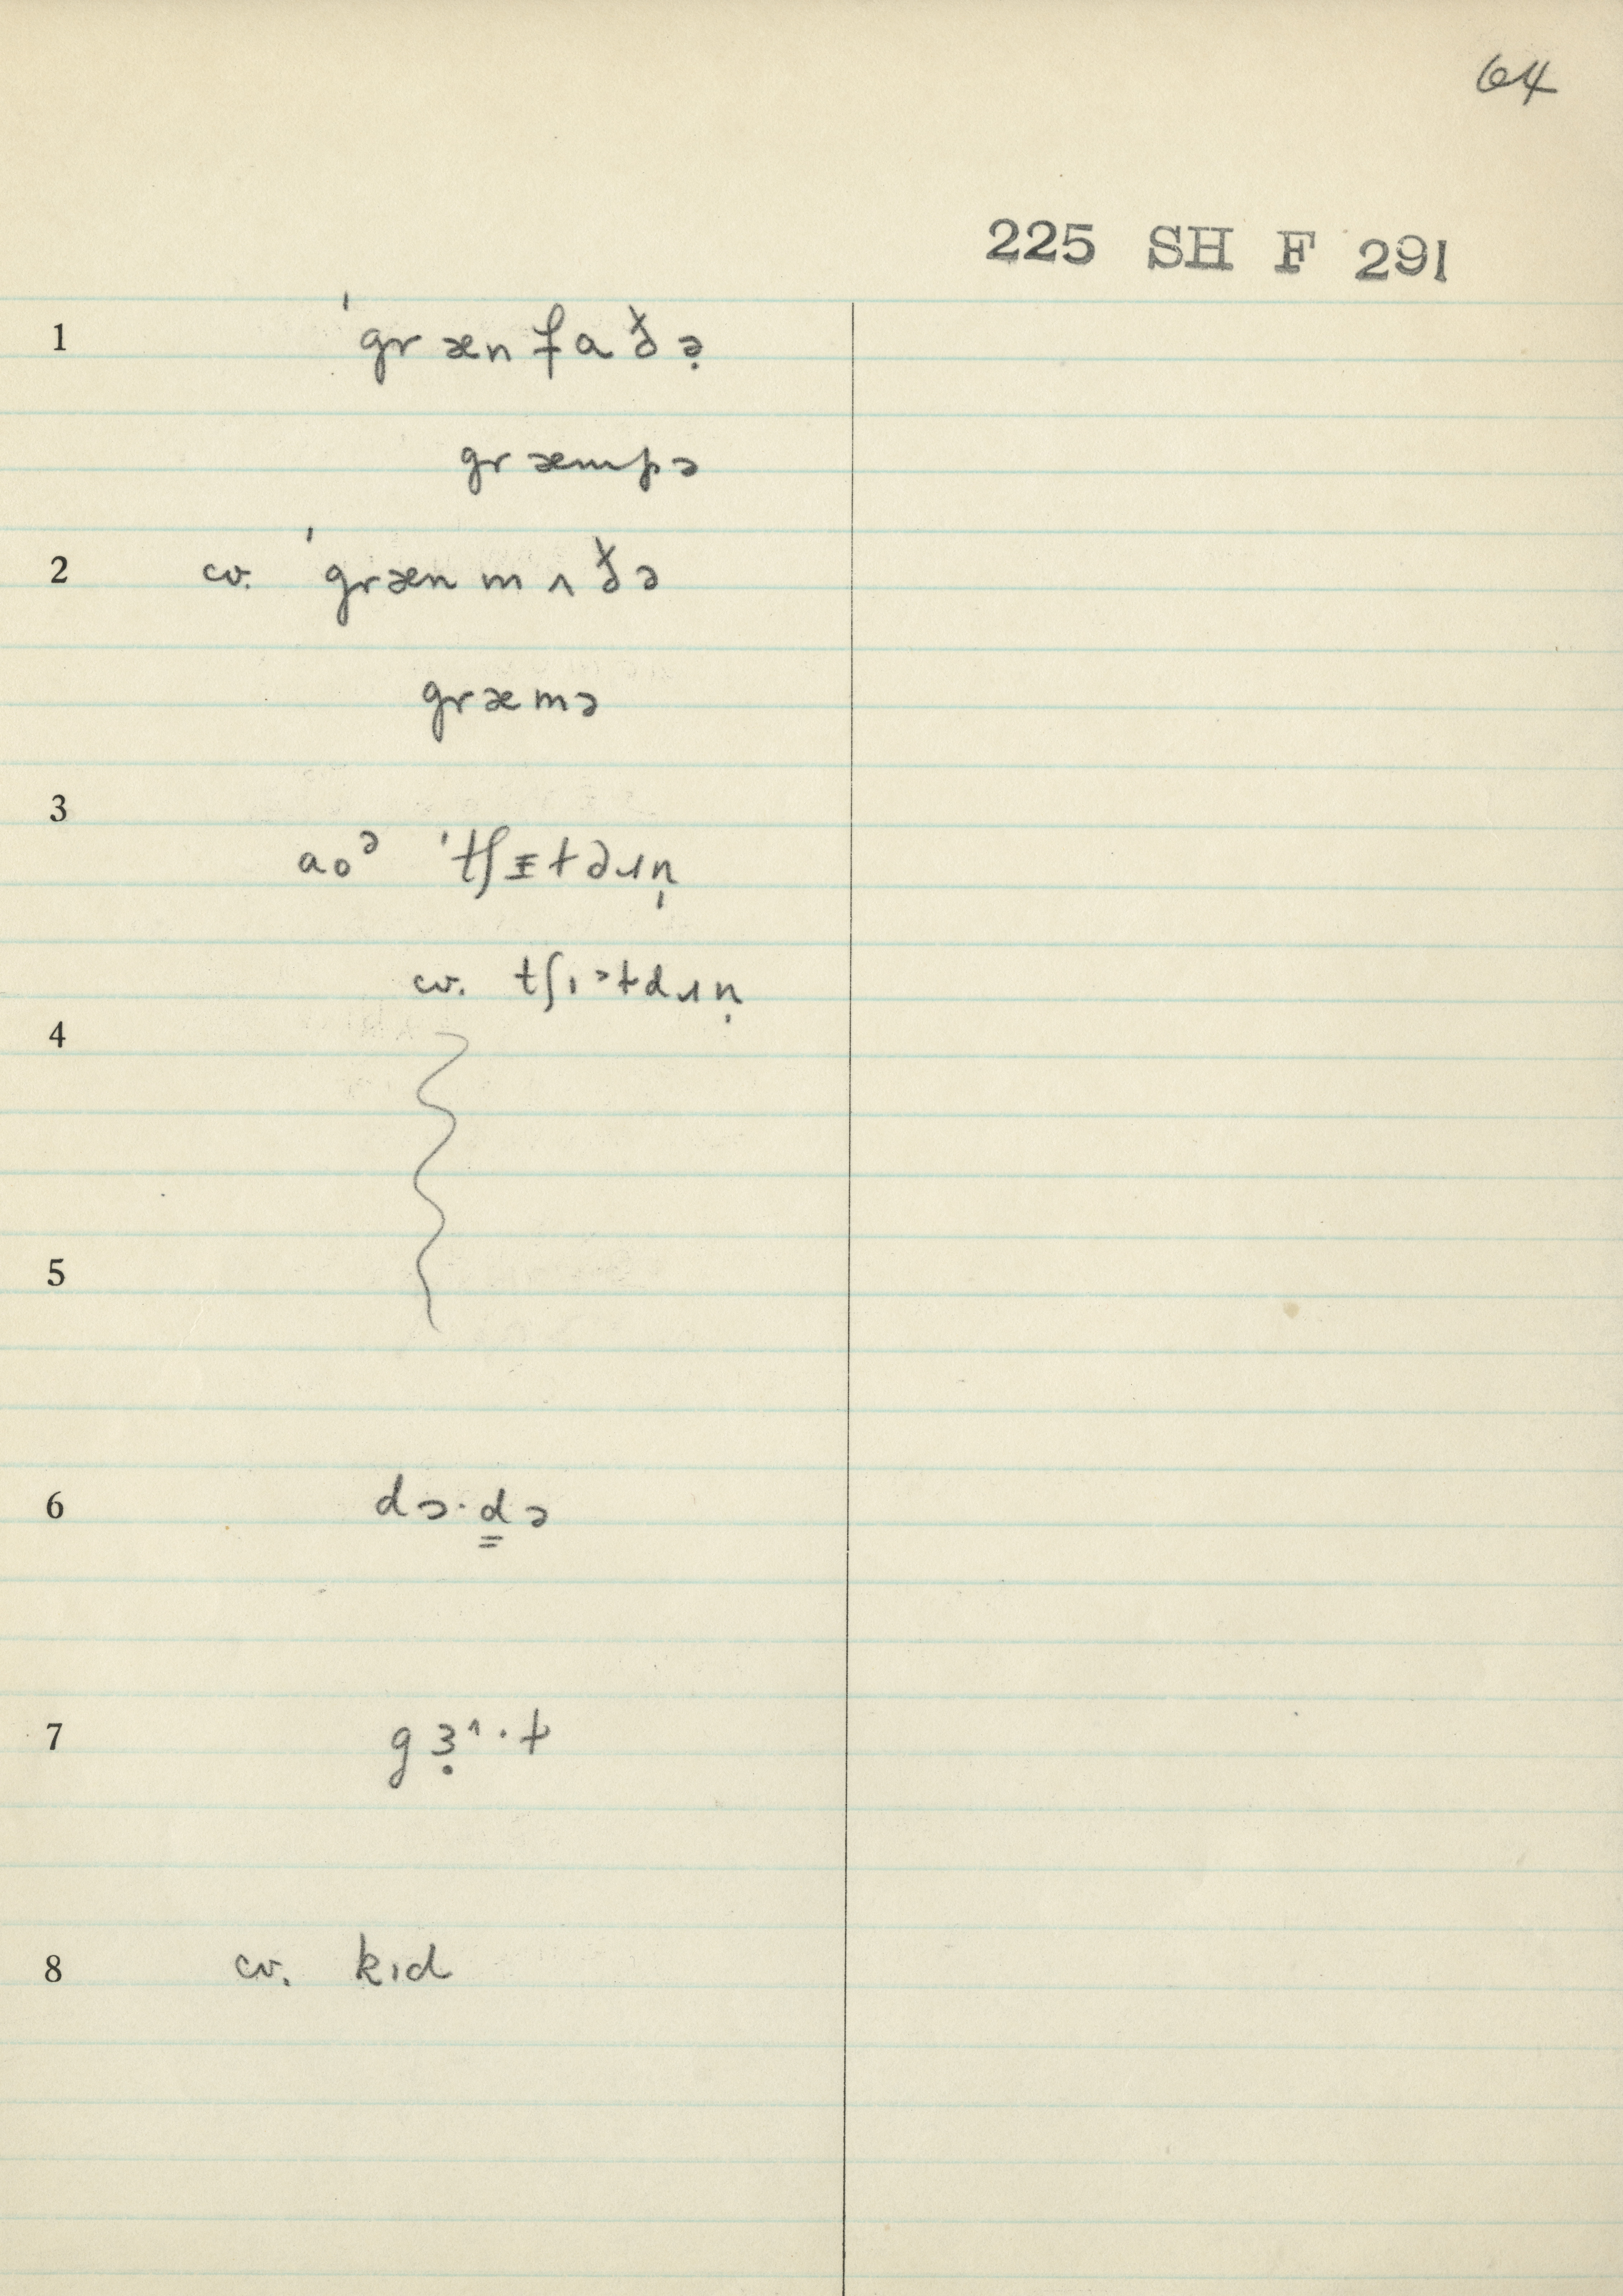 64
225 SH F 291
1 ˈgrænfaðə̣
græmpə
2 cv. ˈgrænmʌðə
græmə
3
aoᵊ ˈtʃɪtdɹn̩
cv. tʃɪ˃tdɹn̩
4
5
6 dɔ·d͇ə
7 gɜ̣^·t
8 cv. kɪd